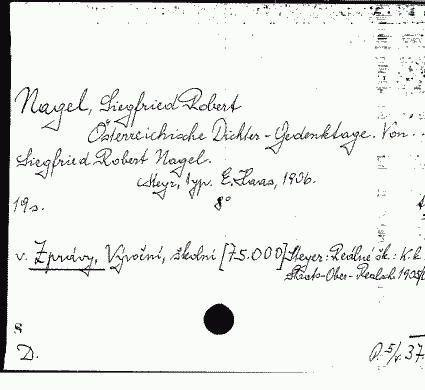 Nagel, Siegfried Robert
Österreichische Dichter-Gedenktage. Von...
Siegfried Robert Nagel.
Steyr, typ. E. Haas, 1906.
19 s. 8°
v. Zprávy, Výroční, školní [75.000] Steyer: Reálné šk.: K. k.
Staats-Ober-Realsch. 1905/
8
D. P. 5/v. 37.